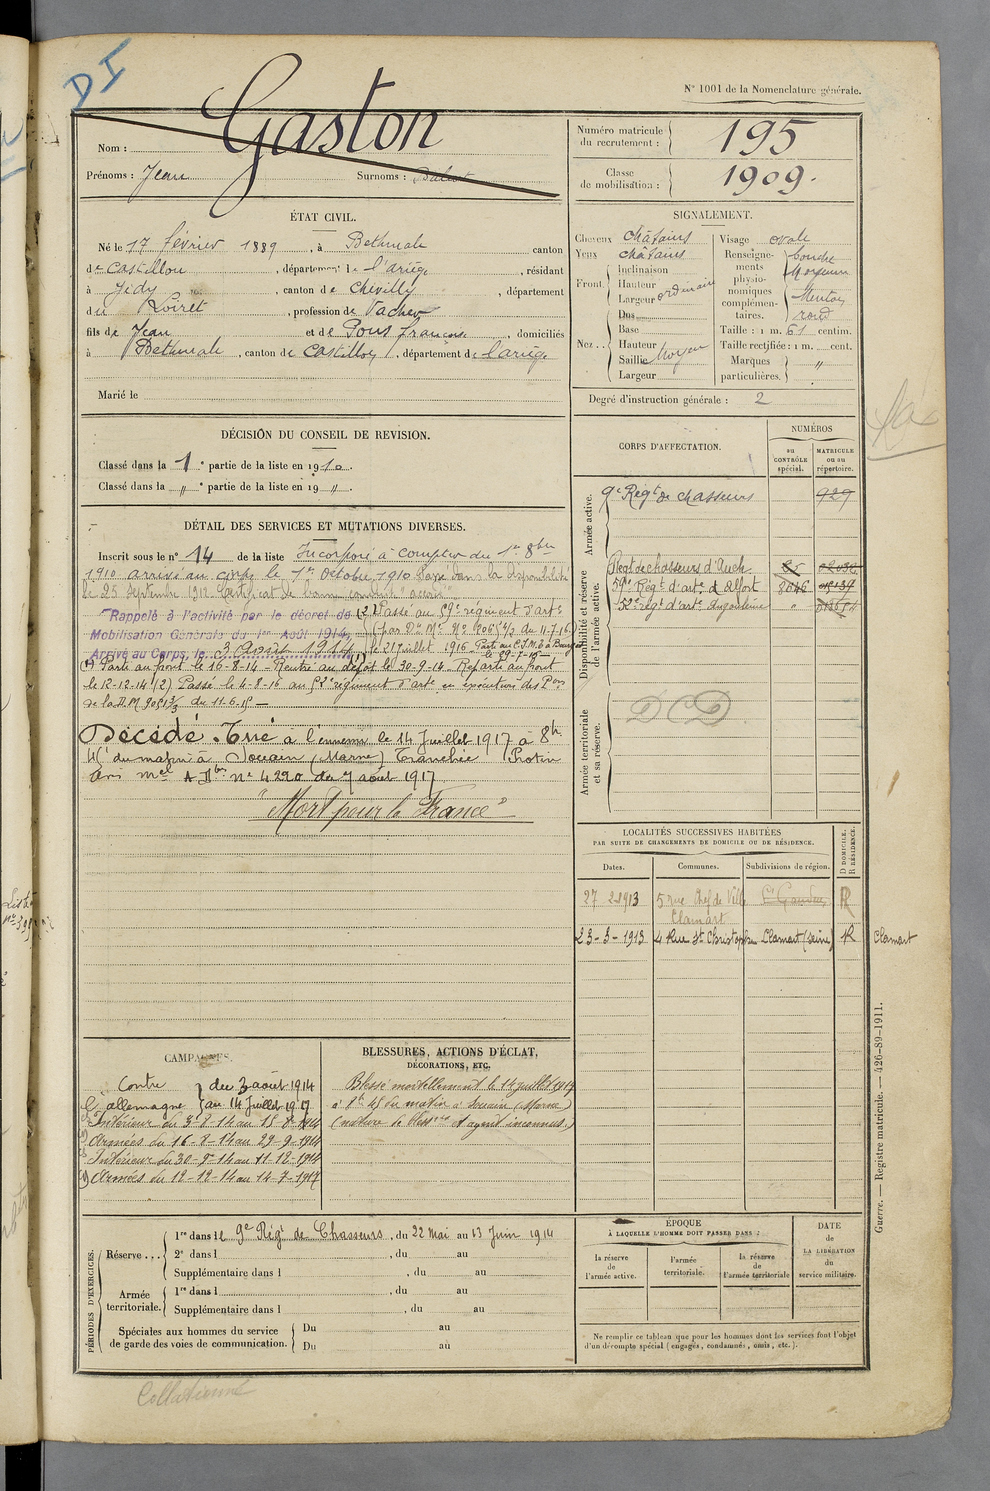 DI
N° 1001 de la Nomenclature générale.
Nom : Gaston
Prénoms : Jean Surnoms :
Numéro matricule du recrutement : 195
Classe de mobilisation : 1909.
ÉTAT CIVIL.
Né le 17 février 1889, à Bethmale canton
de Castillon, département de l'ariège, résidant
à Jidy, canton de Chevilly, département
du Loiret, profession de Vacher
fils de Jean et de Pons françoise, domiciliés
à Bethmale, canton de Castillon, département de l'ariège
Marié le
SIGNALEMENT.
Cheveux châtains
Yeux châtains
Front. Inclinaison
Hauteur
Largeur ordinaire
Nez.. Dos
Base
Hauteur
Saillie Moyen
Largeur
Visage ovale
Renseignements physionomiques complémentaires. bouche Moyenne
Menton rond
Taille : 1 m. 61 centim.
Taille rectifiée : 1 m. cent.
Marques particulières. "
Degré d'instruction générale : 2
DÉCISION DU CONSEIL DE REVISION.
Classé dans la 1e partie de la liste en 1910.
Classé dans la " e partie de la liste en 19 ".
DÉTAIL DES SERVICES ET MUTATIONS DIVERSES.
Inscrit sous le n° 14 de la liste Incorporé à compter du 1er 8bre
1910 arrivé au corps le 1er Octobre 1910 Passé dans la disponibilité
le 25 Septembre 1912 Certificat de bonne conduite "accordé"
Rappelé à l'activité par le décret de
Mobilisation Générale du 1er Août 1914,
Arrivé au Corps, le 3 Août 1914 (1)
(2) Passé au 59e régiment d'arte
le 21 juillet 1916
(1) Parti au front le 16-8-14 - Rentré au dépôt le 30-9-14 Reparti au front
le 12-12-14 (2) Passé le 4-8-16 au 52e régiment d'arte en exécution des Pons
de la D.M. 11-6-15 —
Décédé. Tué à l'ennemi le 14 Juillet 1917 à 8h
45 du matin à Souain (Marne) Tranchée Protin
Avis mel A Dbn n° 4220 du 7 août 1917
"Mort pour la France"
CORPS D'AFFECTATION.
NUMÉROS
au CONTRÔLE spécial.
MATRICULE ou au répertoire.
Armée active.
9e Régt de chasseurs 929
Disponibilité et réserve de l'armée active.
Regt de chasseurs d'Auch
59e Régt d'arte
52e regt d'arte Angoulême
Armée territoriale et sa réserve.
DCD
LOCALITÉS SUCCESSIVES HABITÉES
PAR SUITE DE CHANGEMENTS DE DOMICILE OU DE RÉSIDENCE.
Dates. Communes. Subdivisions de région. D DOMICILE. R RÉSIDENCE.
27 2 1913 5 rue Chef de Ville Clamart St Gaudens R
23-3-1913 4 Rue St Christophe Clamart (Seine) R Clamart
CAMPAGNES.
Contre du 3 août 1914
l'allemagne au 14 Juillet 1917
Intérieur du 3-8-14 au 15-8-1914
Armées du 16-8-14 au 29-9-1914
Intérieur du 30-9-14 au 11-12-1914
Armées du 12-12-14 au 14-7-1917
BLESSURES, ACTIONS D'ÉCLAT,
DÉCORATIONS, ETC.
Blessé mortellement le 14 juillet 1917
à 8h 45 du matin à Souain (Marne)
(nature de blessures et agent inconnus)
PÉRIODES D'EXERCICES.
Réserve...
1re dans le 9e Régt de Chasseurs, du 22 Mai au 13 Juin 1914
2e dans l , du au
Supplémentaire dans l , du au
Armée territoriale.
1re dans l , du au
Supplémentaire dans l , du au
Spéciales aux hommes du service de garde des voies de communication.
Du au
Du au
ÉPOQUE
À LAQUELLE L'HOMME DOIT PASSER DANS :
la réserve de l'armée active.
l'armée territoriale.
la réserve de l'armée territoriale
DATE DE LA LIBÉRATION du service militaire.
Ne remplir ce tableau que pour les hommes dont les services font l'objet
d'un décompte spécial (engagés, condamnés, omis, etc.).
Guerre. — Registre matricule. — 426-89-1911.
Collationné